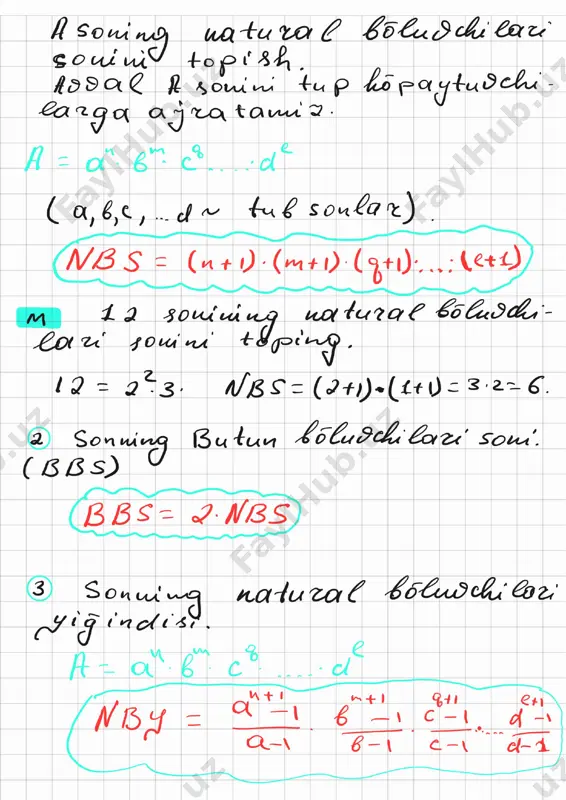 A soning natural bōluvchilari
sonini topish.
Avval A sonini tup kōpaytuvchi-
larga ajratamiz.
A = aⁿ · bᵐ · c^q · ... · d^e
(a, b, c, ... d ~ tub sonlar).
NBS = (n+1)·(m+1)·(q+1)·...·(e+1)
M 12 sonining natural bōluvchi-
lari sonini toping.
12 = 2²·3. NBS = (2+1)·(1+1) = 3·2 = 6.
2 Sonning Butun bōluvchilari soni.
(BBS)
BBS = 2·NBS
3 Sonning natural bōluvchilari
yiğindisi.
A = aⁿ · bᵐ · c^q · ..... · d^e
NBY = (a^(n+1) - 1)/(a-1) · (b^(m+1) - 1)/(b-1) · (c^(q+1) - 1)/(c-1) · .... (d^(e+1) - 1)/(d-1)
FaylHub.uz
FaylHub.uz
FaylHub.uz
FaylHub.uz
uz
uz
uz